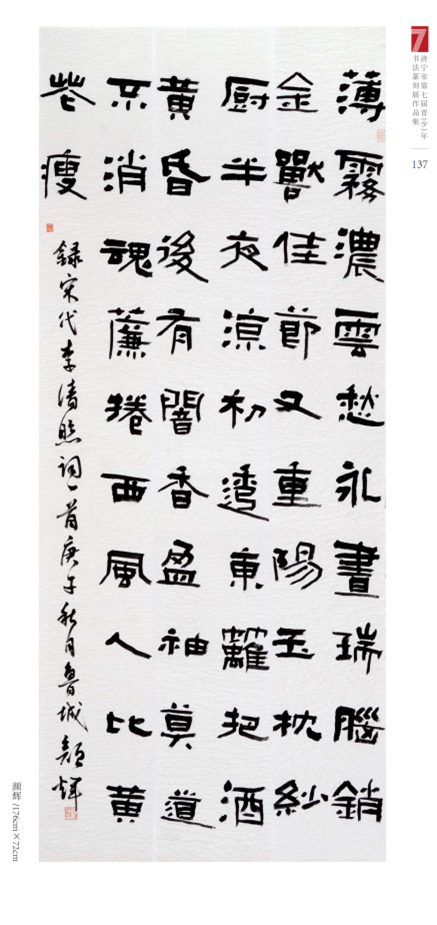 7
济宁市第七届青(少)年
书法篆刻展作品集
137
薄霧濃雲愁永晝瑞腦銷
金獸佳節又重陽玉枕紗
厨半夜涼初透東籬把酒
黃昏後有闇香盈袖莫道
不消魂簾捲西風人比黃
花瘦
録宋代李清照詞一首庚子秋月魯城顏輝
颜辉 /176cm×72cm